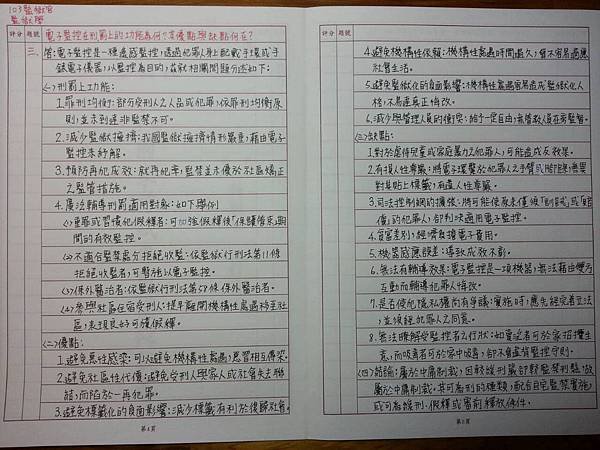 103監獄官
監獄學
評分 題號
電子監控在刑罰上的功能為何?其優點與缺點何在?
三、答:電子監控是一種遠感監控,透過犯人身上配戴手環或手
錶電子儀器,以監控為目的,茲就相關問題分述如下:
(一)刑罰上功能:
1.罪刑均衡:部分受刑人之人品或犯罪,依罪刑均衡原
則,並未到達非監禁不可。
2.減少監獄擁擠:我國監獄擁擠情形嚴重,藉由電子
監控來紓解。
3.預防再犯成效:就再犯率,監禁並未優於社區矯正
之監督措施。
4.廣泛輔導刑罰適用對象:如下舉例
(1)重罪或習慣犯假釋者:可加強假釋後「保護管束」期
間的有效監控。
(2)不適合監禁處分拒絕收監:依監獄行刑法第11條
拒絕收監者,可暫施以電子監控。
(3)保外醫治者:依監獄行刑法第58條保外醫治者。
(4)參與社區住宿受刑人:提早離開機構性處遇移至社
區,表現良好可獲假釋。
(二)優點:
1.避免惡性感染:可以避免機構性處遇,惡習相互傳染。
2.避免社區性代價:避免受刑人與家人或社會失去聯
結,而陷於一再犯罪。
3.避免標籤化的負面影響:減少標籤有利於復歸社會。
第4頁
評分 題號
4.避免機構性依賴:機構性處遇時間過久,會不容易適應
社會生活。
5.避免監獄化的負面影響:機構性處遇容易造成監獄化人
格,不易產真正悔改。
6.減少與管理人員的衝突:給予一定自由,無管教人員在旁監督。
(三)缺點:
1.對於虐待兒童或家庭暴力之犯罪人,可能造成反效果。
2.有損人性尊嚴:將電子環繫於犯罪人之手臂或腳踝處,無異
對其貼上標籤,有違人性尊嚴。
3.司法控制網的擴張:將可能使原來僅須「制誡」或「賠
償」的犯罪人,卻判決適用電子監控。
4.貧富差別,經濟負擔電子費用。
5.機器感應誤差:導致成效不彰。
6.無法有輔導效果:電子監控是一項機器,無法藉由雙方
互動而輔導犯罪人悔改。
7.是否侵犯隱私權尚有爭議:實施時,應先經完善立法
,並須經犯罪人之同意。
8.無法瞭解受監控者之行狀:如賣淫者可於家招攬生
意,而吸毒者可於家中吸毒,卻不會違背監控守則。
(四)結論:屬於中庸制裁,因較緩刑嚴卻對監禁刑鬆,故
屬於中庸制裁。其可為刑的種類,配合自宅監禁實施
或可為緩刑、假釋或審前釋放條件。
第5頁